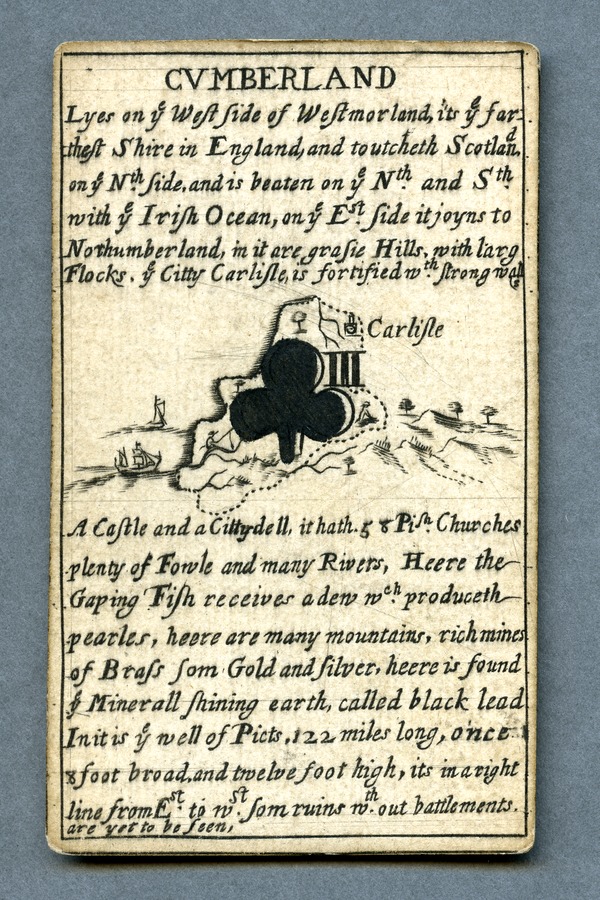 CVMBERLAND
Lyes on yᵉ West side of Westmorland, its yᵉ far-
thest Shire in England, and toutcheth Scotlanᵈ.
on yᵉ Nᵗʰ side, and is beaten on yᵉ Nᵗʰ and Sᵗʰ
with yᵉ Irish Ocean, on yᵉ Eˢᵗ side it joyns to
Nothumberland, in it are grasie Hills, with larg
Flocks. yᵉ Citty Carlisle, is fortified wᵗʰ strong wall
Carlisle
III
A Castle and a Cittydell, it hath. 58 Piˢʰ Churches
plenty of Fowle and many Rivers, Heere the
Gaping Fish receives a dew wᶜʰ produceth
pearles, heere are many mountains, rich mines
of Brass som Gold and silver, heere is found
yᵉ Minerall shining earth, called black lead
In it is yᵉ well of Picts, 122 miles long, once
8 foot broad, and twelve foot high, its in a right
line from Eˢᵗ to wˢᵗ som ruins wᵗʰ out battlements.
are yet to be seen,